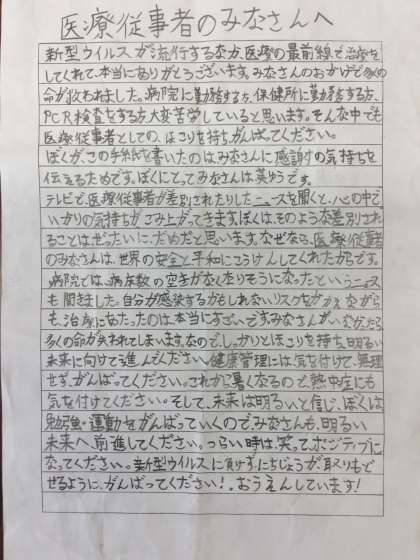 医療従事者のみなさんへ
新型ウイルスが流行するなか、医療の最前線で治療を
してくれて、本当にありがとうございます。みなさんのおかげで多くの
命が救われました。病院に勤務する方、保健所に勤務する方、
PCR検査をする方、大変苦労していると思います。そんな中でも
医療従事者としての、ほこりを持ち、がんばってください。
ぼくが、この手紙を書いたのは、みなさんに感謝の気持ちを
伝えるためです。ぼくにとってみなさんは英ゆうです。
テレビで、医療従事者が差別されたりしたニュースを聞くと、心の中で
いかりの気持ちがこみ上げてきます。ぼくは、そのような差別され
ることはぜったいに、だめだと思います。なぜなら、医療従事者
のみなさんは、世界の安全と平和にこうけんしてくれたからです。
病院では、病床数の空きがなくなりそうになったというニュース
も聞きました。自分が感染するかもしれないリスクをかかえながら
も、治療にあたったのは本当にすごいです。みなさんがいなかったら
多くの命が失われてしまいます。なので、しっかりとほこりを持ち、明るい
未来に向けて進んでください。健康管理には、気を付けて、無理
せず、がんばってください。これから暑くなるので、熱中症にも
気を付けてください。そして、未来は明るいと信じ、ぼくは、
勉強・運動をがんばっていくのでみなさんも、明るい
未来へ、前進してください。つらい時は、笑って、ポジティブに
なってください。新型ウイルスに負けず、にちじょうが、取りもど
せるように、がんばってください！おうえんしています！